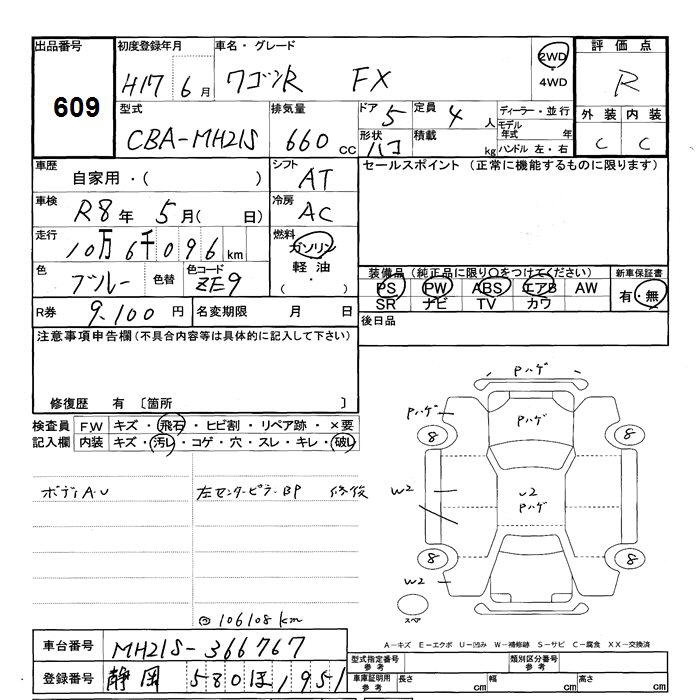 出品番号
609
初度登録年月
H17 6月
車名・グレード
ワゴンR FX
2WD
・
4WD
評価点
R
外装 内装
C C
型式
CBA-MH21S
排気量
660cc
ドア 5
形状 ハコ
定員 4人
積載 kg
ディーラー・並行
モデル年式 年
ハンドル 左・右
車歴
自家用・( )
シフト
AT
セールスポイント (正常に機能するものに限ります)
車検
R8年 5月( 日)
冷房
AC
走行
10万6千096km
燃料
ガソリン
・
軽油
・
色
ブルー
色替
色コード
ZE9
装備品(純正品に限り○をつけてください)
PS PW ABS エアB AW
SR ナビ TV カワ
新車保証書
有・無
R券 9,100円
名変期限 月 日
後日品
注意事項申告欄(不具合内容等は具体的に記入して下さい)
修復歴 有 〔箇所 〕
検査員記入欄
FW キズ・飛石・ヒビ割・リペア跡・×要
内装 キズ・汚レ・コゲ・穴・スレ・キレ・破レ
ボディA・U
左センターピラーBP 修復
◎106108km
Pハゲ
Pハゲ
Pハゲ
8 8
W2
U2
Pハゲ
8 8
W2
スペア
A-キズ E-エクボ U-凹み W-補修跡 S-サビ C-腐食 XX-交換済
車台番号
MH21S-366767
登録番号
静岡 580 ほ 1951
型式指定番号
参考
類別区分番号
参考
車庫証明用
参考
長さ cm
幅 cm
高さ cm